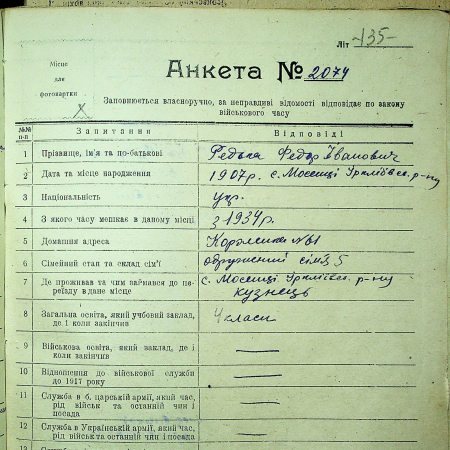 Літ -135-
Місце
для
фотокартки
Анкета № 2074
Заповнюється власноручно, за неправдиві відомості відповідає по закону
військового часу
№№ п-п Запитання Відповіді
1 Прізвище, ім'я та по-батькові Редька Федор Іванович
2 Дата та місце народження 1907 р. с. Мосенці Іркліївськ. р-ну
3 Національність укр.
4 З якого часу мешкає в даному місці з 1934 р.
5 Домашня адреса №1
6 Сімейний стан та склад сім'ї одружений сім'я 5
7 Де проживав та чим займався до пе- с. Мосенці Іркліївськ. р-ну
реїзду в дане місце кузнець
8 Загальна освіта, який учбовий заклад, 4 класи
де і коли закінчив
9 Військова освіта, який заклад, де і
коли закінчив
10 Відношення до військової служби
до 1917 року
11 Служба в б. царській армії, який час,
рід військ та останній чин і
посада
12 Служба в Українській армії, який час,
рід військ та останній чин і посада
13